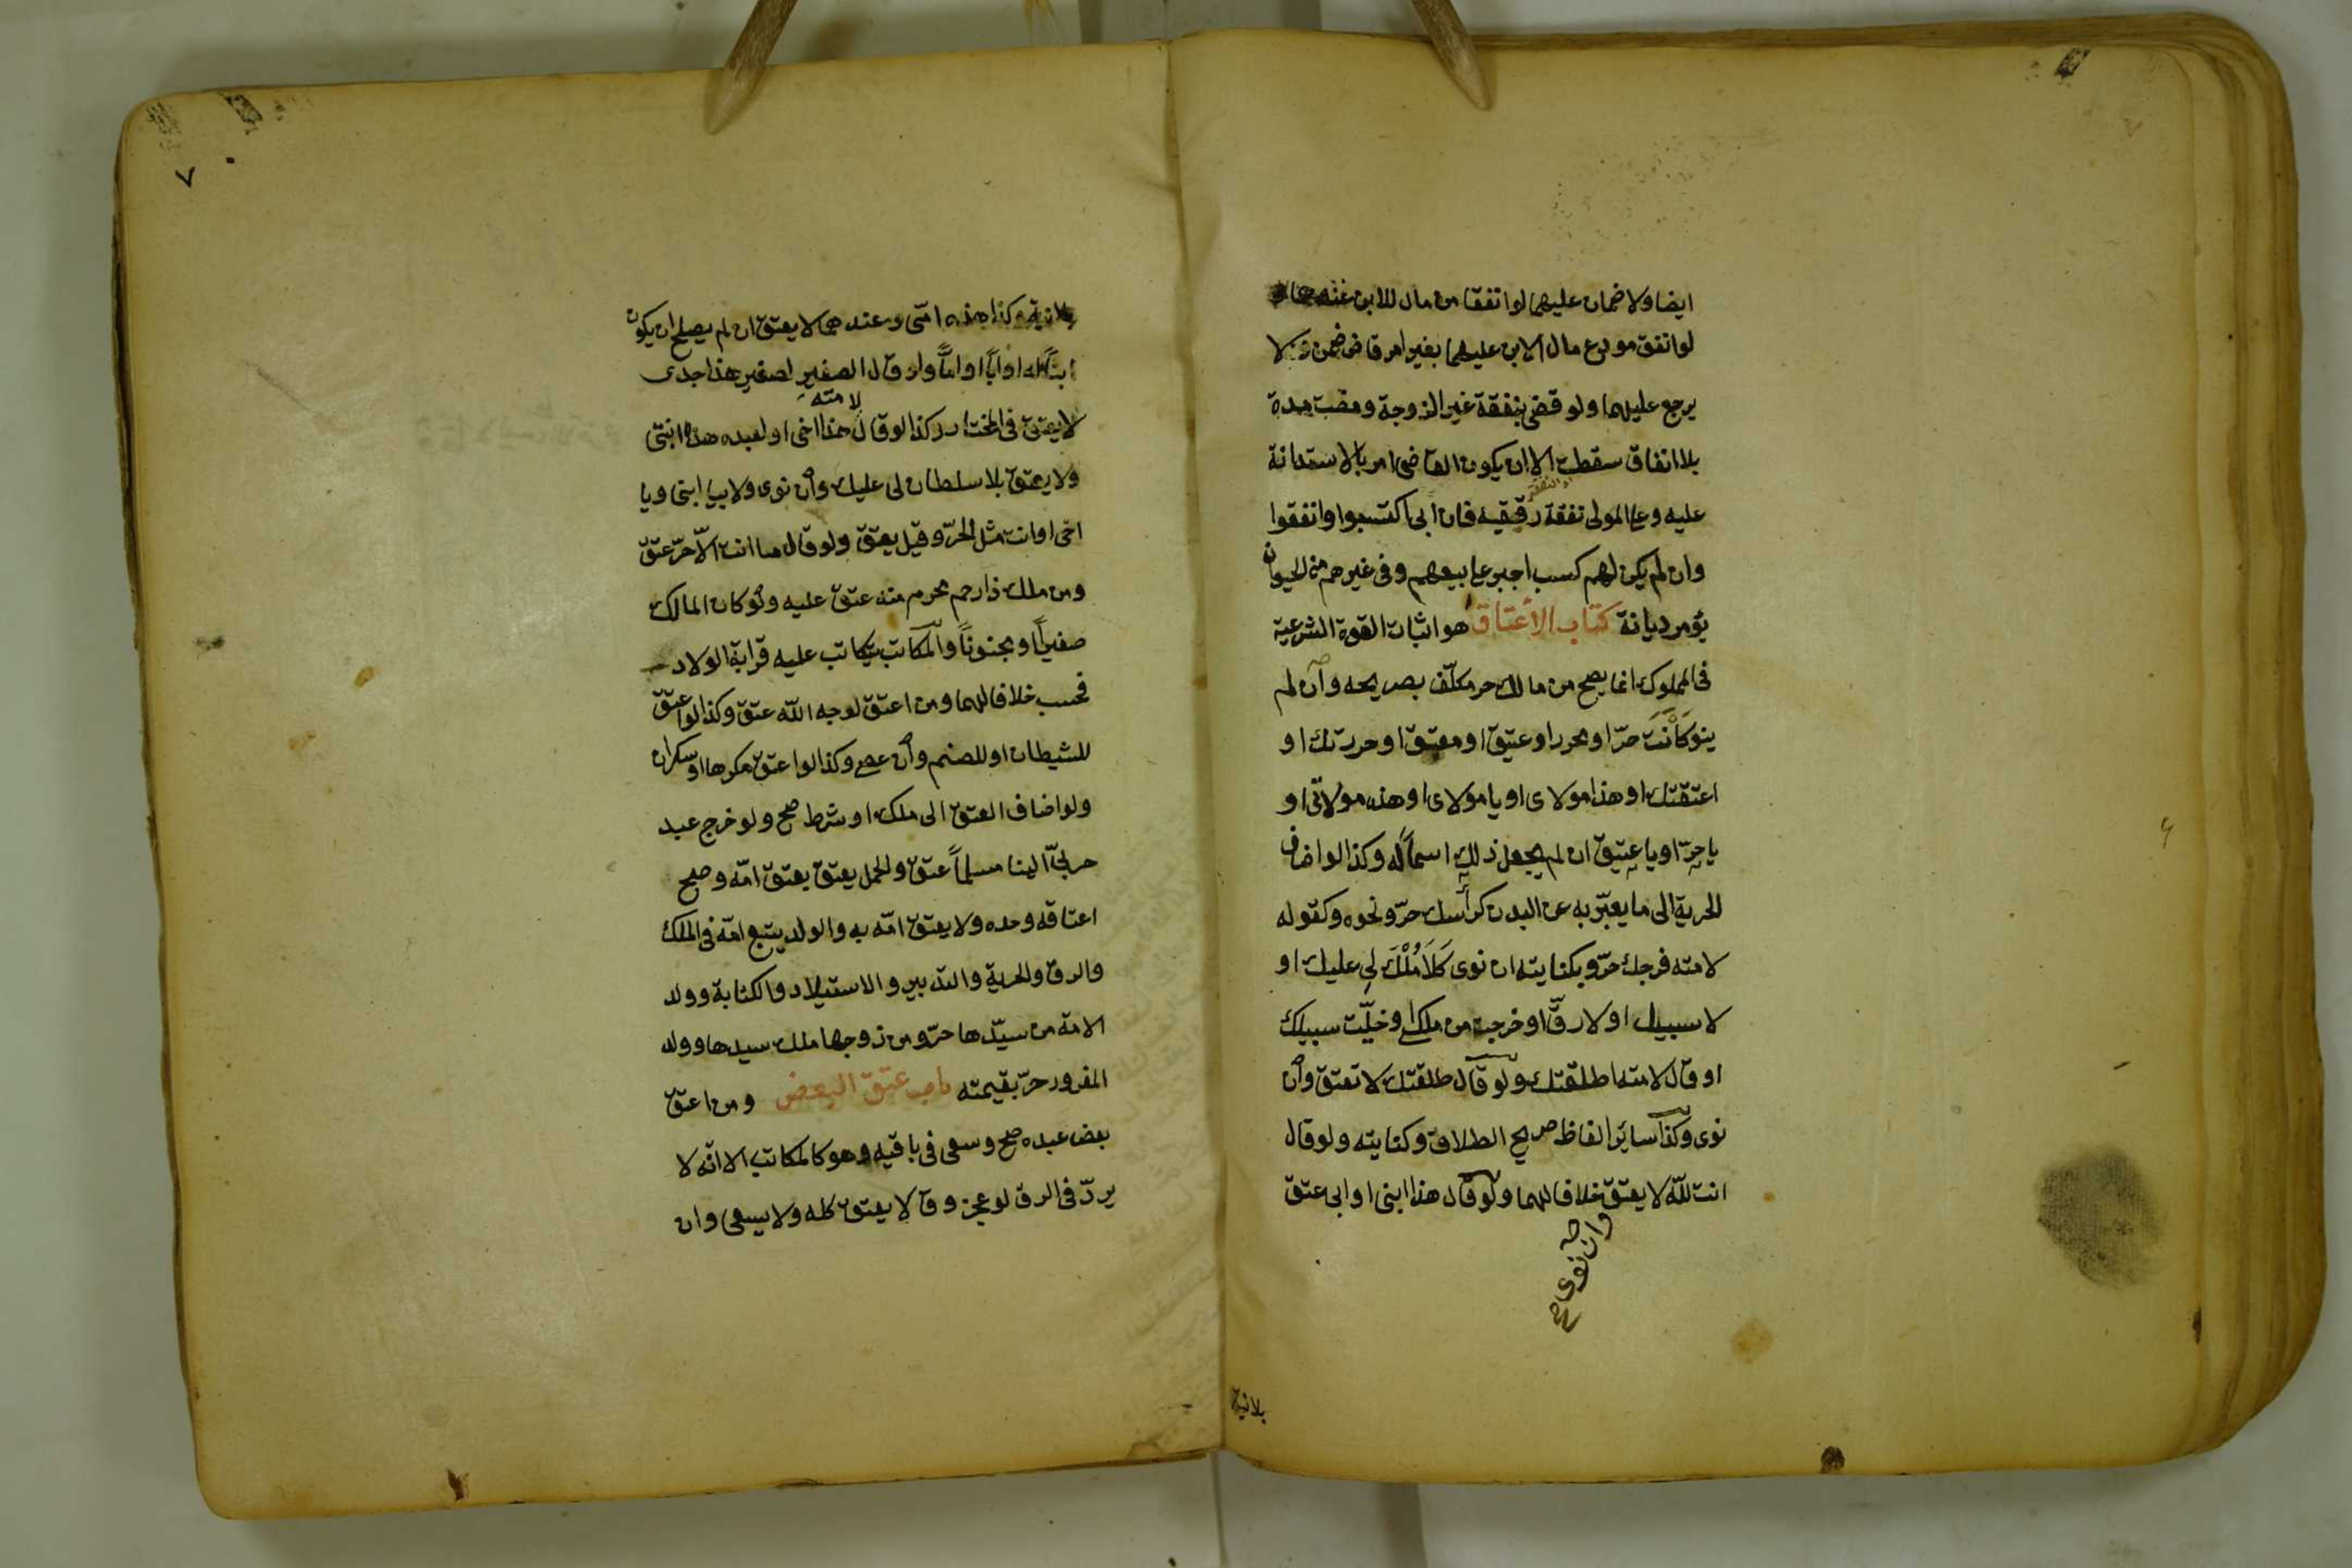 ايضا ولا ضمان عليهما لو انفقا من مال للابن عندهما
لو انفق مودع مال الابن عليهما بغير امر قاض ضمن ولا
يرجع عليهما ولو قضى بنفقة غير الزوجة ومضت مدة
بلا انفاق سقطت الا ان يكون القاضى امر بالاستدانة
عليه وعلى المولى نفقة رقيقه فان ابى اكتسبوا وانفقوا
وان لم يكن لهم كسب اجبر على بيعهم وفى غيرهم من الحيوان
يؤمر ديانة كتاب الاعتاق هو اثبات القوة الشرعية
فى المملوك انما يصح من مالك حر مكلّف بصريحه وان لم
ينو كَاَنْتَ حرّ او محرر او عتيق او معتق او حررتك او
اعتقتك او هذا مولاى او يا مولاى او هذه مولاتى او
يا حرّ او يا عتيق ان لم يجعل ذلك اسماً له وكذا لو اضاف
الحرية الى ما يعبّر به عن البدن كرأسك حرّ ونحوه وكقوله
لامته فرجك حرّ وبكنايته ان نوى كَلَا مُلْكَ لى عليك او
لا سبيل او لا رقَّ او خرجت من ملكى او خلّيت سبيلك
او قال لامته اطلقتك ولو قال طلقتك لا تعتق وان
نوى وكذا سائر الفاظ صريح الطلاق وكنايته ولو قال
انت للّه لا يعتق خلافا لهما ولو قال هذا ابنى او ابى عتق
وان نوى صح
بلا نية
٧٠
بلا نية وكذا هذه امّى وعندهما لا يعتق ان لم يصلح ان يكون
ابناً له او اباً او امّاً ولو قال الصغير لصغير هذا جدى
لا يعتق فى المختار وكذا لو قال هذا اخى او لعبده هذه ابنتى
لامته
ولا يعتق بلا سلطان لى عليك وان نوى ولا بيا ابنى ويا
اخى او انت مثل الحرّ وقيل يعتق ولو قال ما انت الّا حرّ عتق
ومن ملك ذا رحم محرم منه عتق عليه ولو كان المالك
صغيراً او مجنوناً والمكاتب يتكاتب عليه قرابة الولاد
فحسب خلافا لهما ومن اعتق لوجه اللّه عتق وكذا لو اعتق
للشيطان او للصنم وان عصى وكذا لو اعتق مكرها او سكران
ولو اضاف العتق الى ملك او شرط صح ولو خرج عبد
حربىّ الينا مسلماً عتق والحمل يعتق بعتق امّه وصح
اعتاقه وحده ولا يعتق امّه به والولد يتبع امّه فى الملك
والرق والحرية والتدبير والاستيلاد والكتابة وولد
الامة من سيّدها حرّ ومن زوجها ملك سيدها وولد
المغرور حرّ بقيمته باب عتق البعض ومن اعتق
بعض عبده صح وسعى فى باقيه وهو كالمكاتب الا انّه لا
يردّ فى الرق لو عجز وقالا يعتق كله ولا يسعى وان